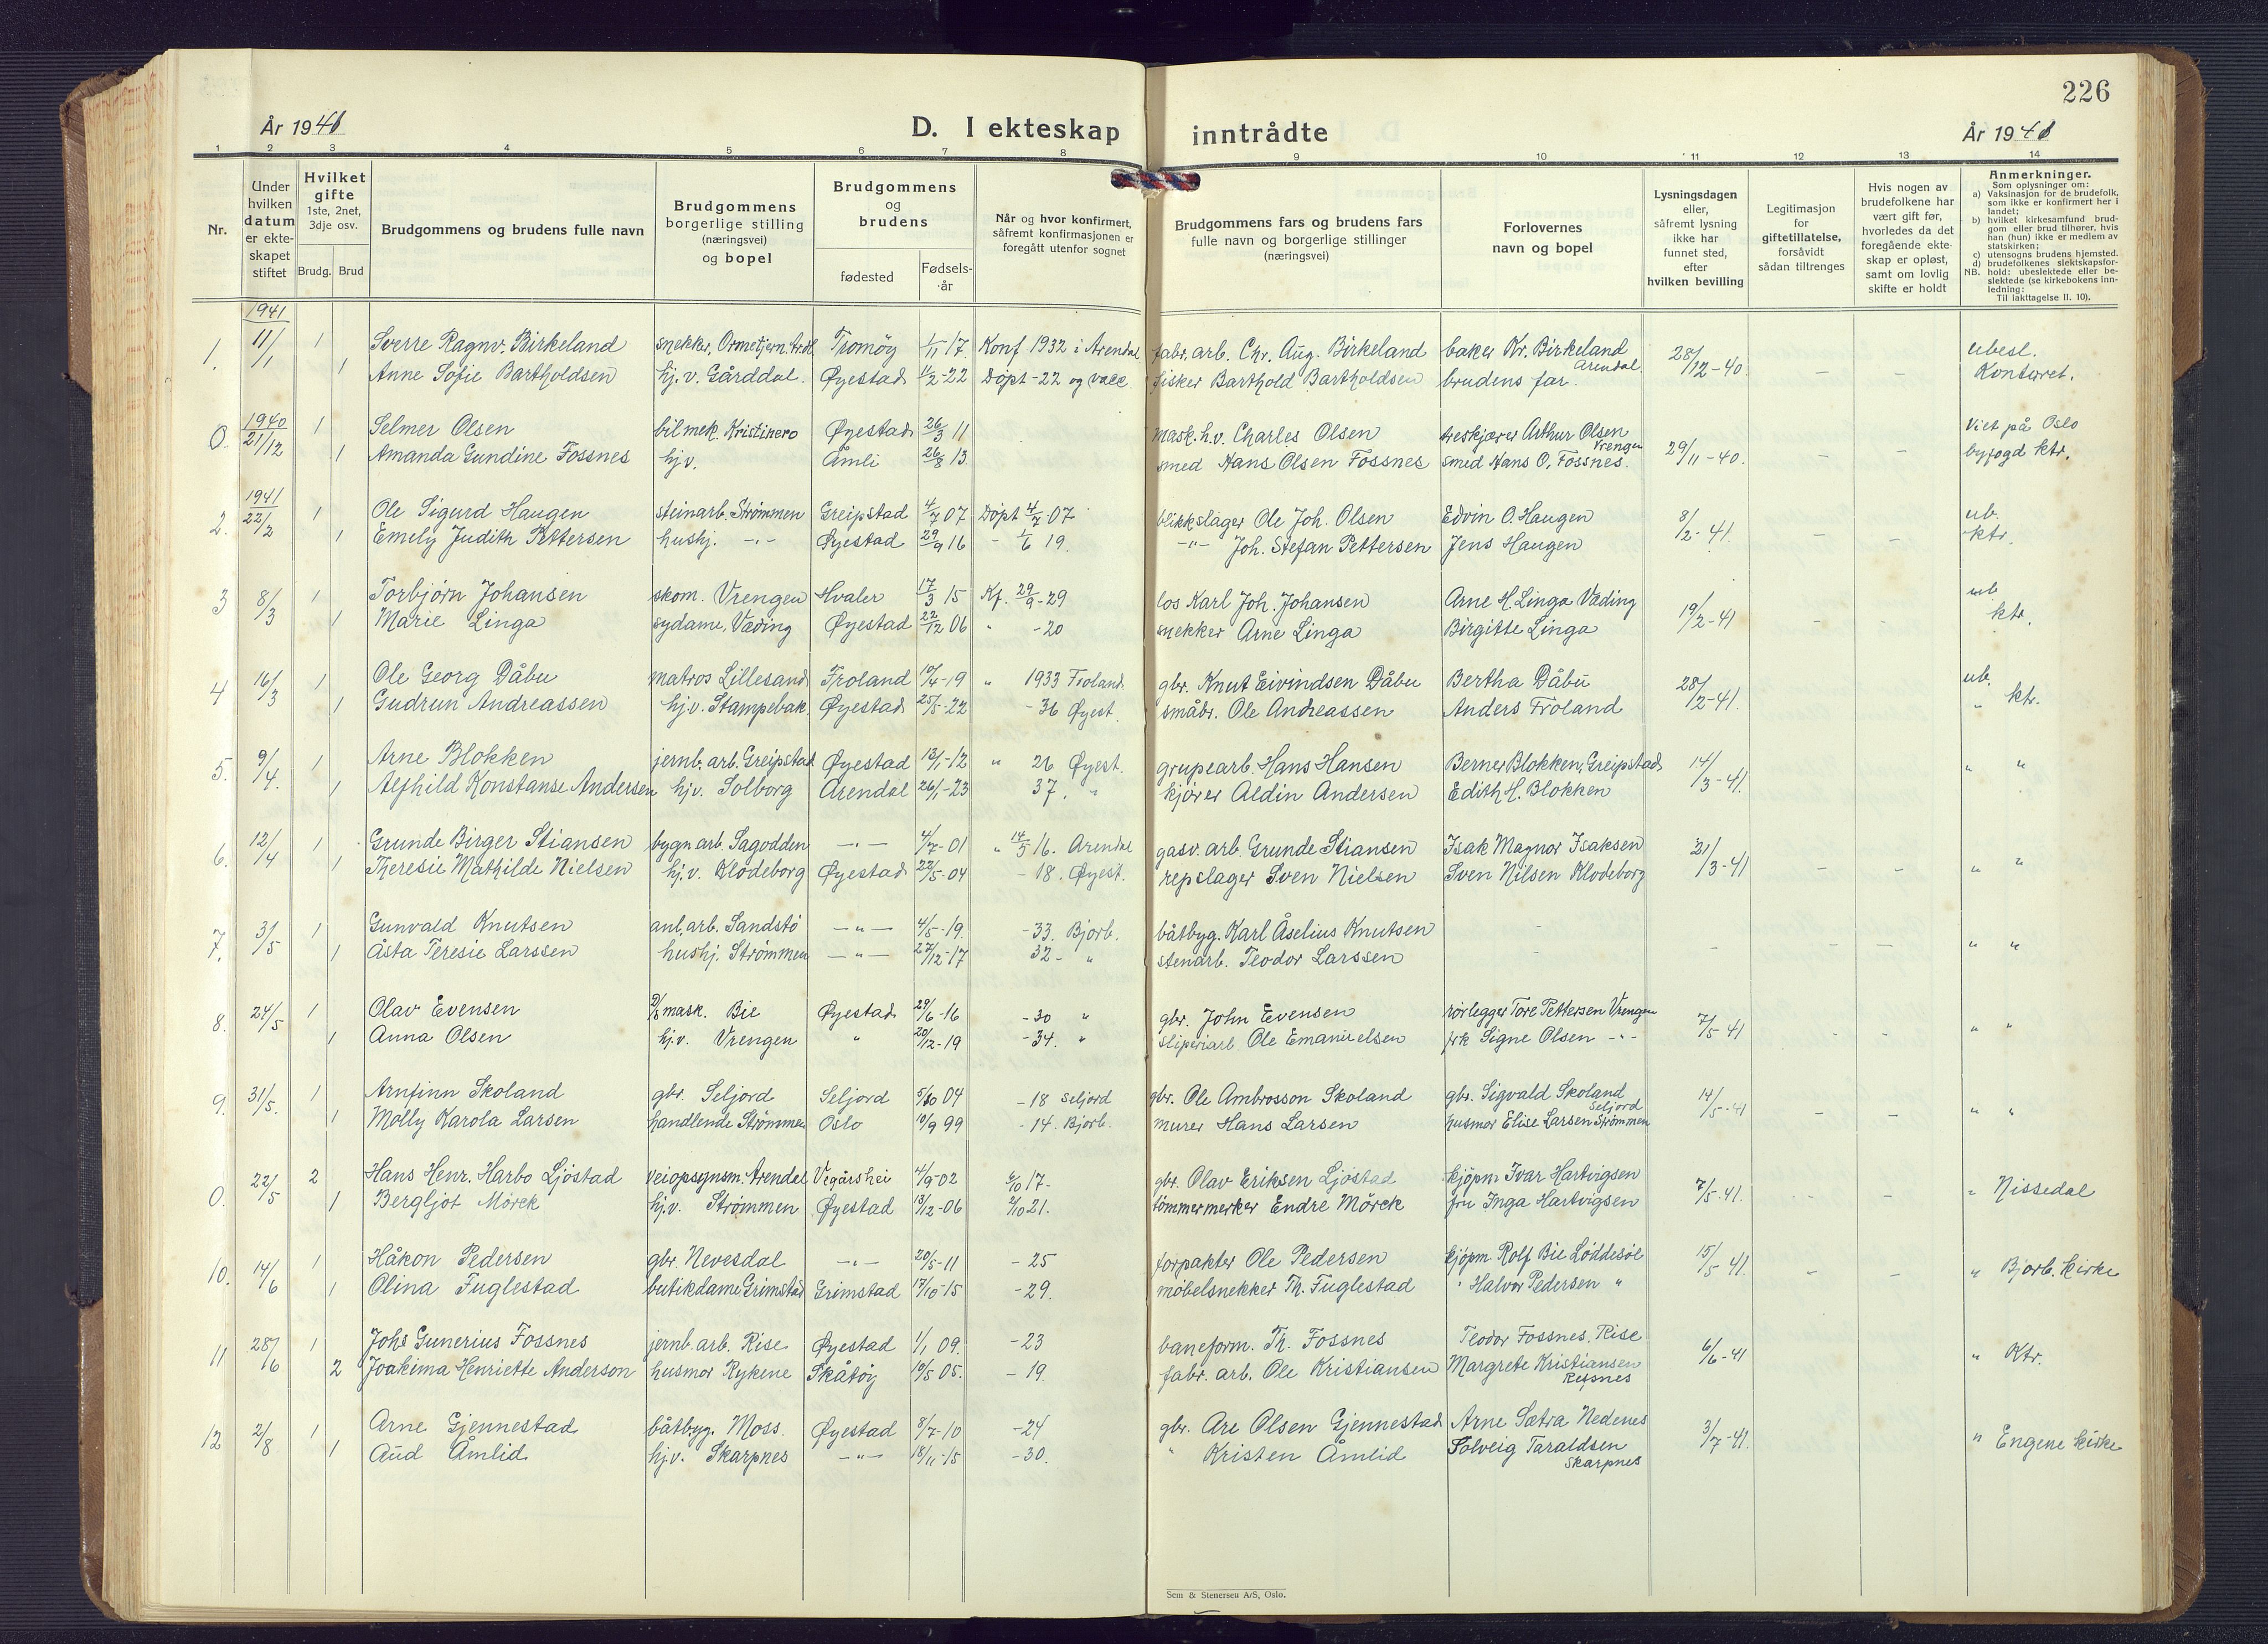 226
År 1941
D. I ekteskap inntrådte
År 1941
1 2 3 4 5 6 7 8 9 10 11 12 13 14
Nr.
Under hvilken datum er ekte-skapet stiftet
Hvilket gifte 1ste, 2net, 3dje osv.
Brudg. Brud
Brudgommens og brudens fulle navn
Brudgommens borgerlige stilling (næringsvei) og bopel
Brudgommens og brudens
fødested
Fødsels-år
Når og hvor konfirmert, såfremt konfirmasjonen er foregått utenfor sognet
Brudgommens fars og brudens fars fulle navn og borgerlige stillinger (næringsvei)
Forlovernes navn og bopel
Lysningsdagen eller, såfremt lysning ikke har funnet sted, efter hvilken bevilling
Legitimasjon for giftetillatelse, forsåvidt sådan tiltrenges
Hvis nogen av brudefolkene har vært gift før, hvorledes da det foregående ekte-skap er opløst, samt om lovlig skifte er holdt
Anmerkninger.
Som oplysninger om:
a) Vaksinasjon for de brudefolk, som ikke er konfirmert her i landet;
b) hvilket kirkesamfund brud-gom eller brud tilhører, hvis han (hun) ikke er medlem av statskirken;
c) utensogns brudens hjemsted.
d) brudefolkenes slektskapsfor-hold: ubeslektede eller be-slektede (se kirkebokens inn-ledning:
NB.
Til iakttagelse II. 10).
1941
1. 11/1 1 Sverre Ragnv. Birkeland snekker, Ormetjern. Ardl Tromöy 1/11 17 Konf 1932 i Arendal fabr. arb. Chr. Aug. Birkeland baker Kr. Birkeland Arendal. 28/12-40 - - ubesl.
1 Anne Sofie Bartholdsen hj. v. Gårddal. Øyestad 11/2-22 Döpt-22 og vacc. fisker Barthold Bartholdsen brudens far. Kontoret.
1940
0. 21/12 1 Selmer Olsen bilmek. Kristinero Øyestad 26/3 11 mask. h.v. Charles Olsen treskjærer Arthur Olsen Vrengen 29/11-40. - - Viet på Oslo
1 Amanda Gundine Fossnes hj.v. Åmli 26/8 13 smed Hans Olsen Fossnes smed Hans O. Fossnes. byfogd ktr.
1941
2. 22/2 1 Ole Sigurd Haugen steinarb. Strømmen Greipstad 4/7 07 Döpt 4/7-07 blikkslager Ole Joh. Olsen Edvin O. Haugen 8/2-41. - - ub.
1 Emely Judith Pettersen hushj. -"- Øyestad 29/9 16 - 1/6 19. -"- Joh. Stefan Pettersen Jens Haugen ktr.
3 8/3 1 Torbjörn Johansen skom. Vrengen Hvaler 17/3 15 Kf. 29/9-29 los Karl Joh. Johansen Arne H. Linga Væding 19/2-41 - - ub
1 Marie Linga sydame, Væding Øyestad 22/12 06 " -20 snekker Arne Linga Birgitte Linga ktr.
4 16/3 1 Ole Georg Dåbu matros Lillesand Froland 10/4-19 " 1933 Froland gbr. Knut Eivindsen Dåbu Bertha Dåbu 28/2-41. ub.
1 Gudrun Andreassen hj.v. Stampebak. Øyestad 25/5-22 -36 Øyest. småbr. Ole Andreassen Anders Froland " ktr.
5. 9/4. 1 Arne Blokken jernb. arb. Greipstad Øyestad 13/1-12 " 26 Øyest. grupearb. Hans Hansen Berner Blokken, Greipstad 14/3-41. " "
1 Alfhild Konstanse Andersen hj.v. Solborg Arendal 26/1-23 37. " kjörer Aldin Andersen Edith H. Blokken
6. 12/4 1 Grunde Birger Stiansen bygn arb. Sagodden -"- 4/7-01 " 14/5 16. Arendal gasv. arb. Grunde Stiansen Isak Magnor Isaksen 21/3-41 - - " "
1 Theresie Mathilde Nielsen hj.v. Klodeborg Øyestad 22/5-04 -18. Øyest. repslager Sven Nielsen Sven Nilsen Klodeborg
7. 31/5 1 Gunvald Knutsen anl. arb. Sandstö -"- 4/5-19. -33. Bjorb. båtbyg. Karl Åselius Knutsen - - - - " "
1 Åsta Teresie Larssen hushj. Strømmen -"- 27/12-17 32- " stenarb. Teodor Larssen -
8. 24/5 1 Olav Evensen mask. Bie Øyestad 29/6-16 -30 " gbr. John Evensen rörlegger Tore Pettersen Vrengen 7/5-41 - - " "
1 Anna Olsen hj.v. Vrengen " 20/12-19 -34. " sliperiarb. Ole Emanuelsen frk Signe Olsen -"-
9. 31/5. 1 Arnfinn Skoland gbr. Seljord Seljord 5/10 04 -18 Seljord gbr. Ole Ambrosson Skoland gbr. Sigvald Skoland Seljord 14/5-41 - - " "
1 Molly Karola Larsen handlende Strømmen Oslo 10/9 99 -14. Bjorb. murer Hans Larsen husmor Elise Larsen Strømmen
0. 22/5 2 Hans Henr. Harbo Ljöstad veiopsynsm. Arendal Vegårshei 4/9-02 6/10 17- gbr. Olav Eriksen Ljöstad kjöpm. Ivar Hartvigsen 7/5-41. - - " Nissedal
1 Bergljot Mörck hj.v. Strømmen Øyestad 13/12-06 2/10 21. tömmermerker Endre Mörck fru Inga Hartvigsen
10. 14/6 1 Håkon Pedersen gbr. Nevesdal -"- 20/5-11 -25 forpakter Ole Pedersen kjöpm. Rolf Bie Löddesöl 15/5 41. - - " Bjorb. kirke
1 Olina Fuglestad butikdame Grimstad Grimstad 17/10-15 -29. möbelsnekker Th. Fuglestad " Halvor Pedersen "
11 28/6 1 Johs Gunerius Fossnes jernb. arb. Rise Øyestad 1/1 09. -23 baneform. Th. Fossnes Teodor Fossnes. Rise 6/6-41 " Ktr.
2 Joakima Henriette Anderson husmor Rykene Skåtöy 10/5 05. -19. fabr. arb. Ole Kristiansen Margrete Kristiansen Refsnes
12 2/8 1 Arne Gjennestad båtbyg. Moss. Øyestad 8/7-10 -24 gbr. Are Olsen Gjennestad Arne Sætra Nedenes 3/7-41. " Engene kirke
1 Aud Åmlid hj.v. Skarpnes -"- 18/11-15 -30. " Kristen Åmlid Solveig Taraldsen Skarpnes
Sem & Stenersen A/S, Oslo.